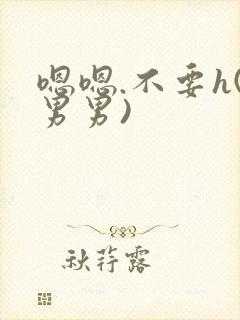 嗯嗯.不要h(
男男)
秋荇露